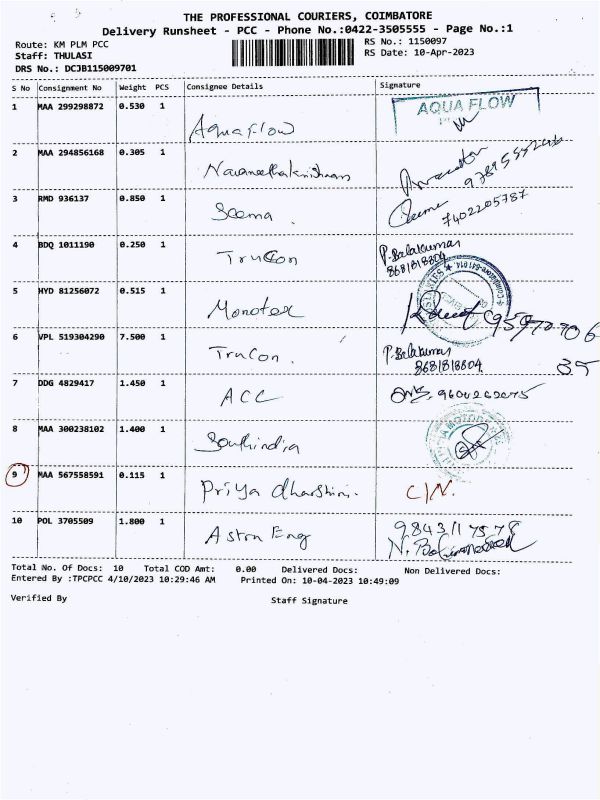 THE PROFESSIONAL COURIERS, COIMBATORE
Delivery Runsheet - PCC - Phone No.:0422-3505555 - Page No.:1
Route: KM PLM PCC RS No.: 1150097
Staff: THULASI RS Date: 10-Apr-2023
DRS No.: DCJB115009701
S No Consignment No Weight PCS Consignee Details Signature
1 MAA 299298872 0.530 1 Aquaflow AQUA FLOW
2 MAA 294856168 0.305 1 Navaneethakrishnan
3 RMD 936137 0.850 1 Seema. 7402205787
4 BDQ 1011190 0.250 1 Trucon P. Balakumar
8681818804
5 HYD 81256072 0.515 1 Monotex
6 VPL 519304290 7.500 1 Trucon. P. Balakumar
8681818804 35
7 DDG 4829417 1.450 1 ACC
8 MAA 300238102 1.400 1 Southindia
9 MAA 567558591 0.115 1 Priya dharshini. C/N.
10 POL 3705509 1.800 1 Astra Eng
Total No. Of Docs: 10 Total COD Amt: 0.00 Delivered Docs: Non Delivered Docs:
Entered By :TPCPCC 4/10/2023 10:29:46 AM Printed On: 10-04-2023 10:49:09
Verified By Staff Signature